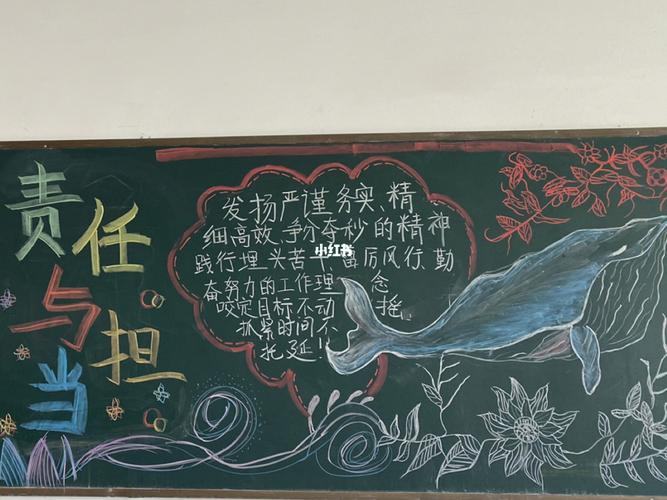 责任
与担
当
发扬严谨务实、精
细高效、争分夺秒的精神
小红书
践行埋头苦干、雷厉风行、勤
奋努力的工作理念
咬定目标不动摇、
抓紧时间不
托延!!